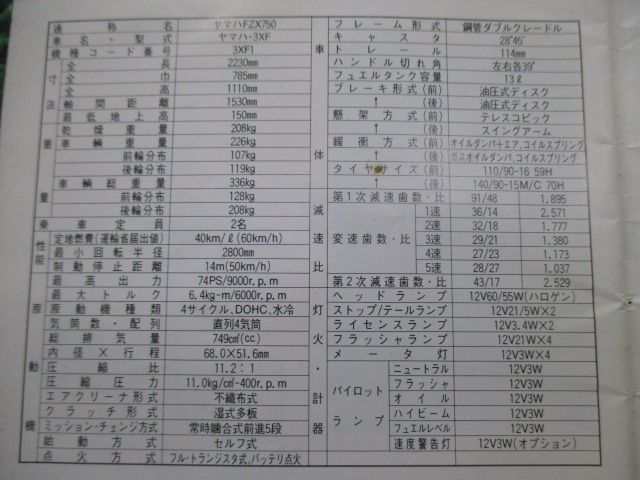 通称名 ヤマハFZX750
車名・型式 ヤマハ・3XF
機種コード番号 3XF1
寸法
全長 2230mm
全巾 785mm
全高 1110mm
軸間距離 1530mm
最低地上高 150mm
重量
乾燥重量 208kg
車輌重量 226kg
前輪分布 107kg
後輪分布 119kg
車輌総重量 336kg
前輪分布 128kg
後輪分布 208kg
乗車定員 2名
性能
定地燃費(運輸省届出値) 40km/ℓ(60km/h)
最小回転半径 2800mm
制動停止距離 14m(50km/h)
原動機
最高出力 74PS/9000r.p.m
最大トルク 6.4kg-m/6000r.p.m
原動機種類 4サイクル、DOHC、水冷
気筒数・配列 直列4気筒
総排気量 749㎤(cc)
内径×行程 68.0×51.6mm
圧縮比 11.2:1
圧縮圧力 11.0kg/㎠-400r.p.m
エアクリーナ形式 不織布式
クラッチ形式 湿式多板
ミッション・チェンジ方式 常時噛合式前進5段
始動方式 セルフ式
点火方式 フル・トランジスタ式、バッテリ点火
車体
フレーム形式 鋼管ダブルクレードル
キャスタ 28°45′
トレール 114mm
ハンドル切れ角 左右各39°
フュエルタンク容量 13ℓ
ブレーキ形式(前) 油圧式ディスク
↑(後) 油圧式ディスク
懸架方式(前) テレスコピック
↑(後) スイングアーム
緩衝方式(前) オイルダンパ+エア、コイルスプリング
↑(後) ガスオイルダンパ、コイルスプリング
タイヤサイズ(前) 110/90-16 59H
↑(後) 140/90-15M/C 70H
減速比
第1次減速歯数・比 91/48 1.895
変速歯数・比
1速 36/14 2.571
2速 32/18 1.777
3速 29/21 1.380
4速 27/23 1.173
5速 28/27 1.037
第2次減速歯数・比 43/17 2.529
灯火・計器
ヘッドランプ 12V60/55W(ハロゲン)
ストップ/テールランプ 12V21/5W×2
ライセンスランプ 12V3.4W×2
フラッシャランプ 12V21W×4
メータ灯 12V3W×4
パイロットランプ
ニュートラル 12V3W
フラッシャ 12V3W
オイル 12V3W
ハイビーム 12V3W
フュエルレベル 12V3W
速度警告灯 12V3W(オプション)